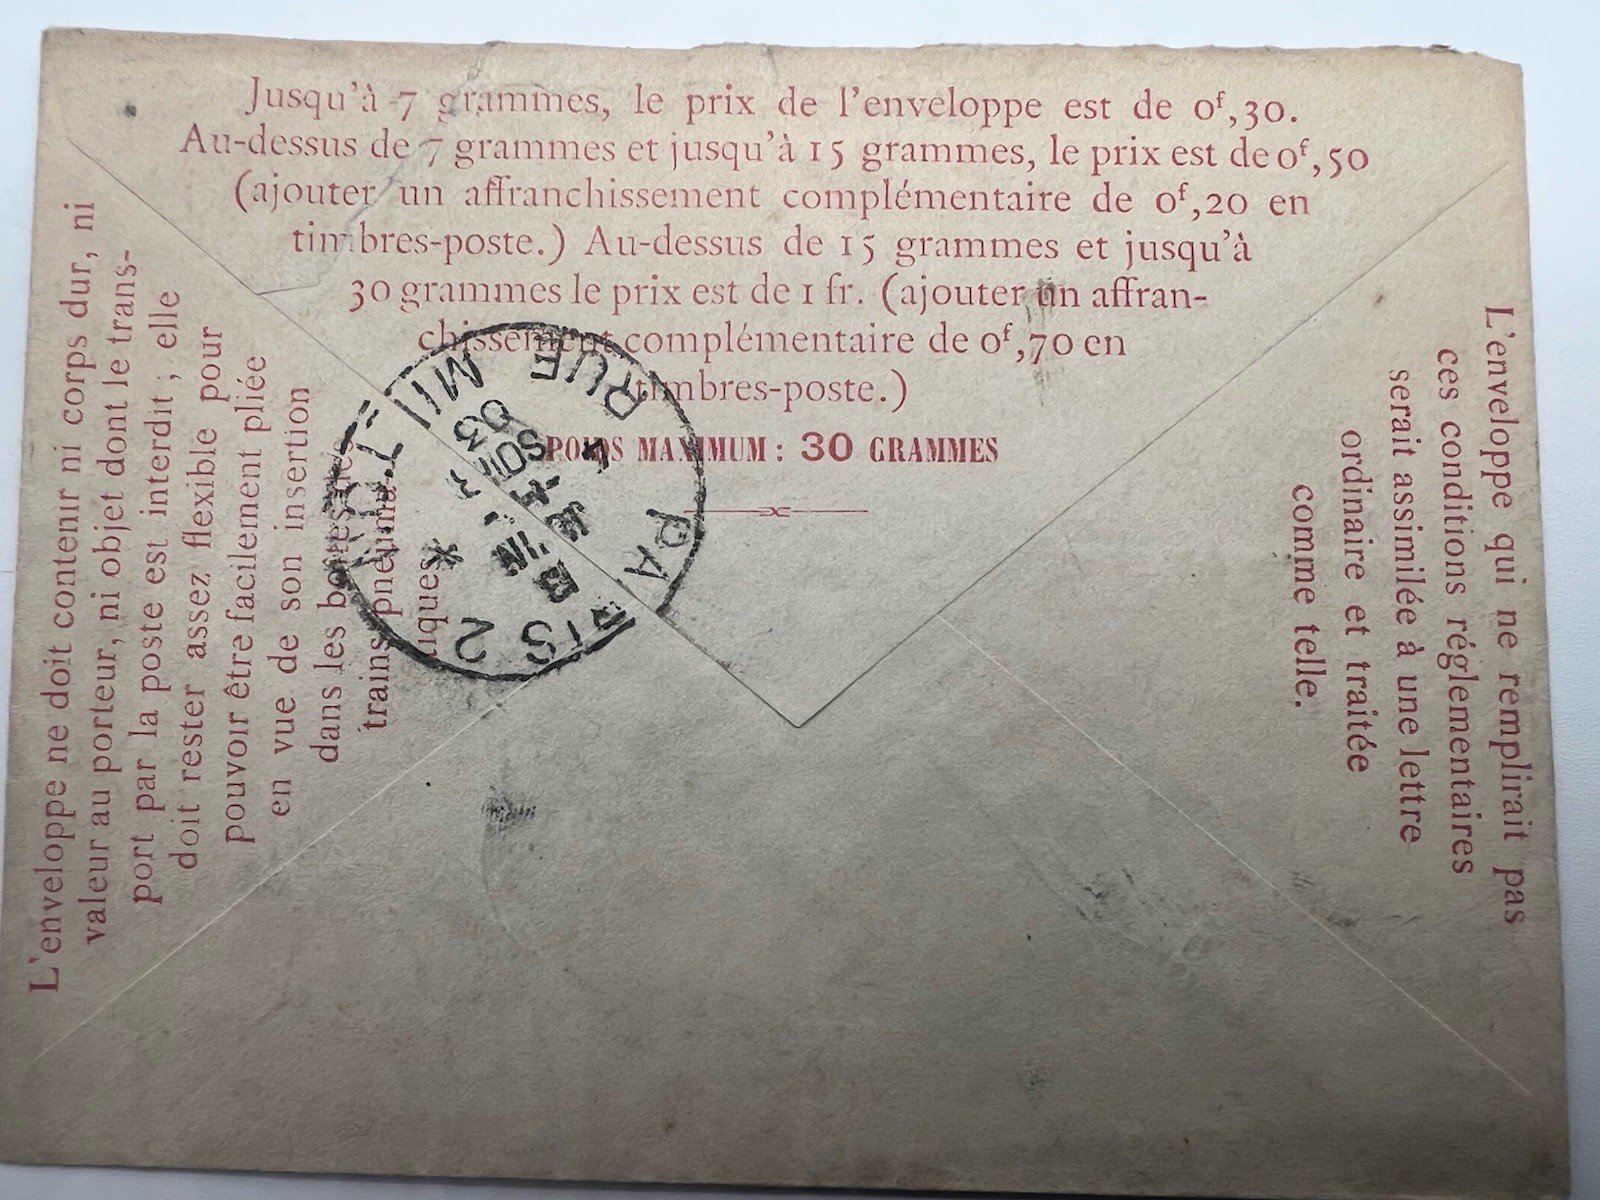 Jusqu'à 7 grammes, le prix de l'enveloppe est de 0f,30.
Au-dessus de 7 grammes et jusqu'à 15 grammes, le prix est de 0f,50
(ajouter un affranchissement complémentaire de 0f,20 en
timbres-poste.) Au-dessus de 15 grammes et jusqu'à
30 grammes le prix est de 1 fr. (ajouter un affran-
chissement complémentaire de 0f,70 en
timbres-poste.)
POIDS MAXIMUM : 30 GRAMMES
L'enveloppe ne doit contenir ni corps dur, ni
valeur au porteur, ni objet dont le trans-
port par la poste est interdit ; elle
doit rester assez flexible pour
pouvoir être facilement pliée
en vue de son insertion
dans les boites des
trains pneuma-
tiques.
L'enveloppe qui ne remplirait pas
ces conditions réglementaires
serait assimilée à une lettre
ordinaire et traitée
comme telle.
PARIS 2
RUE MILTON
SOIR
03